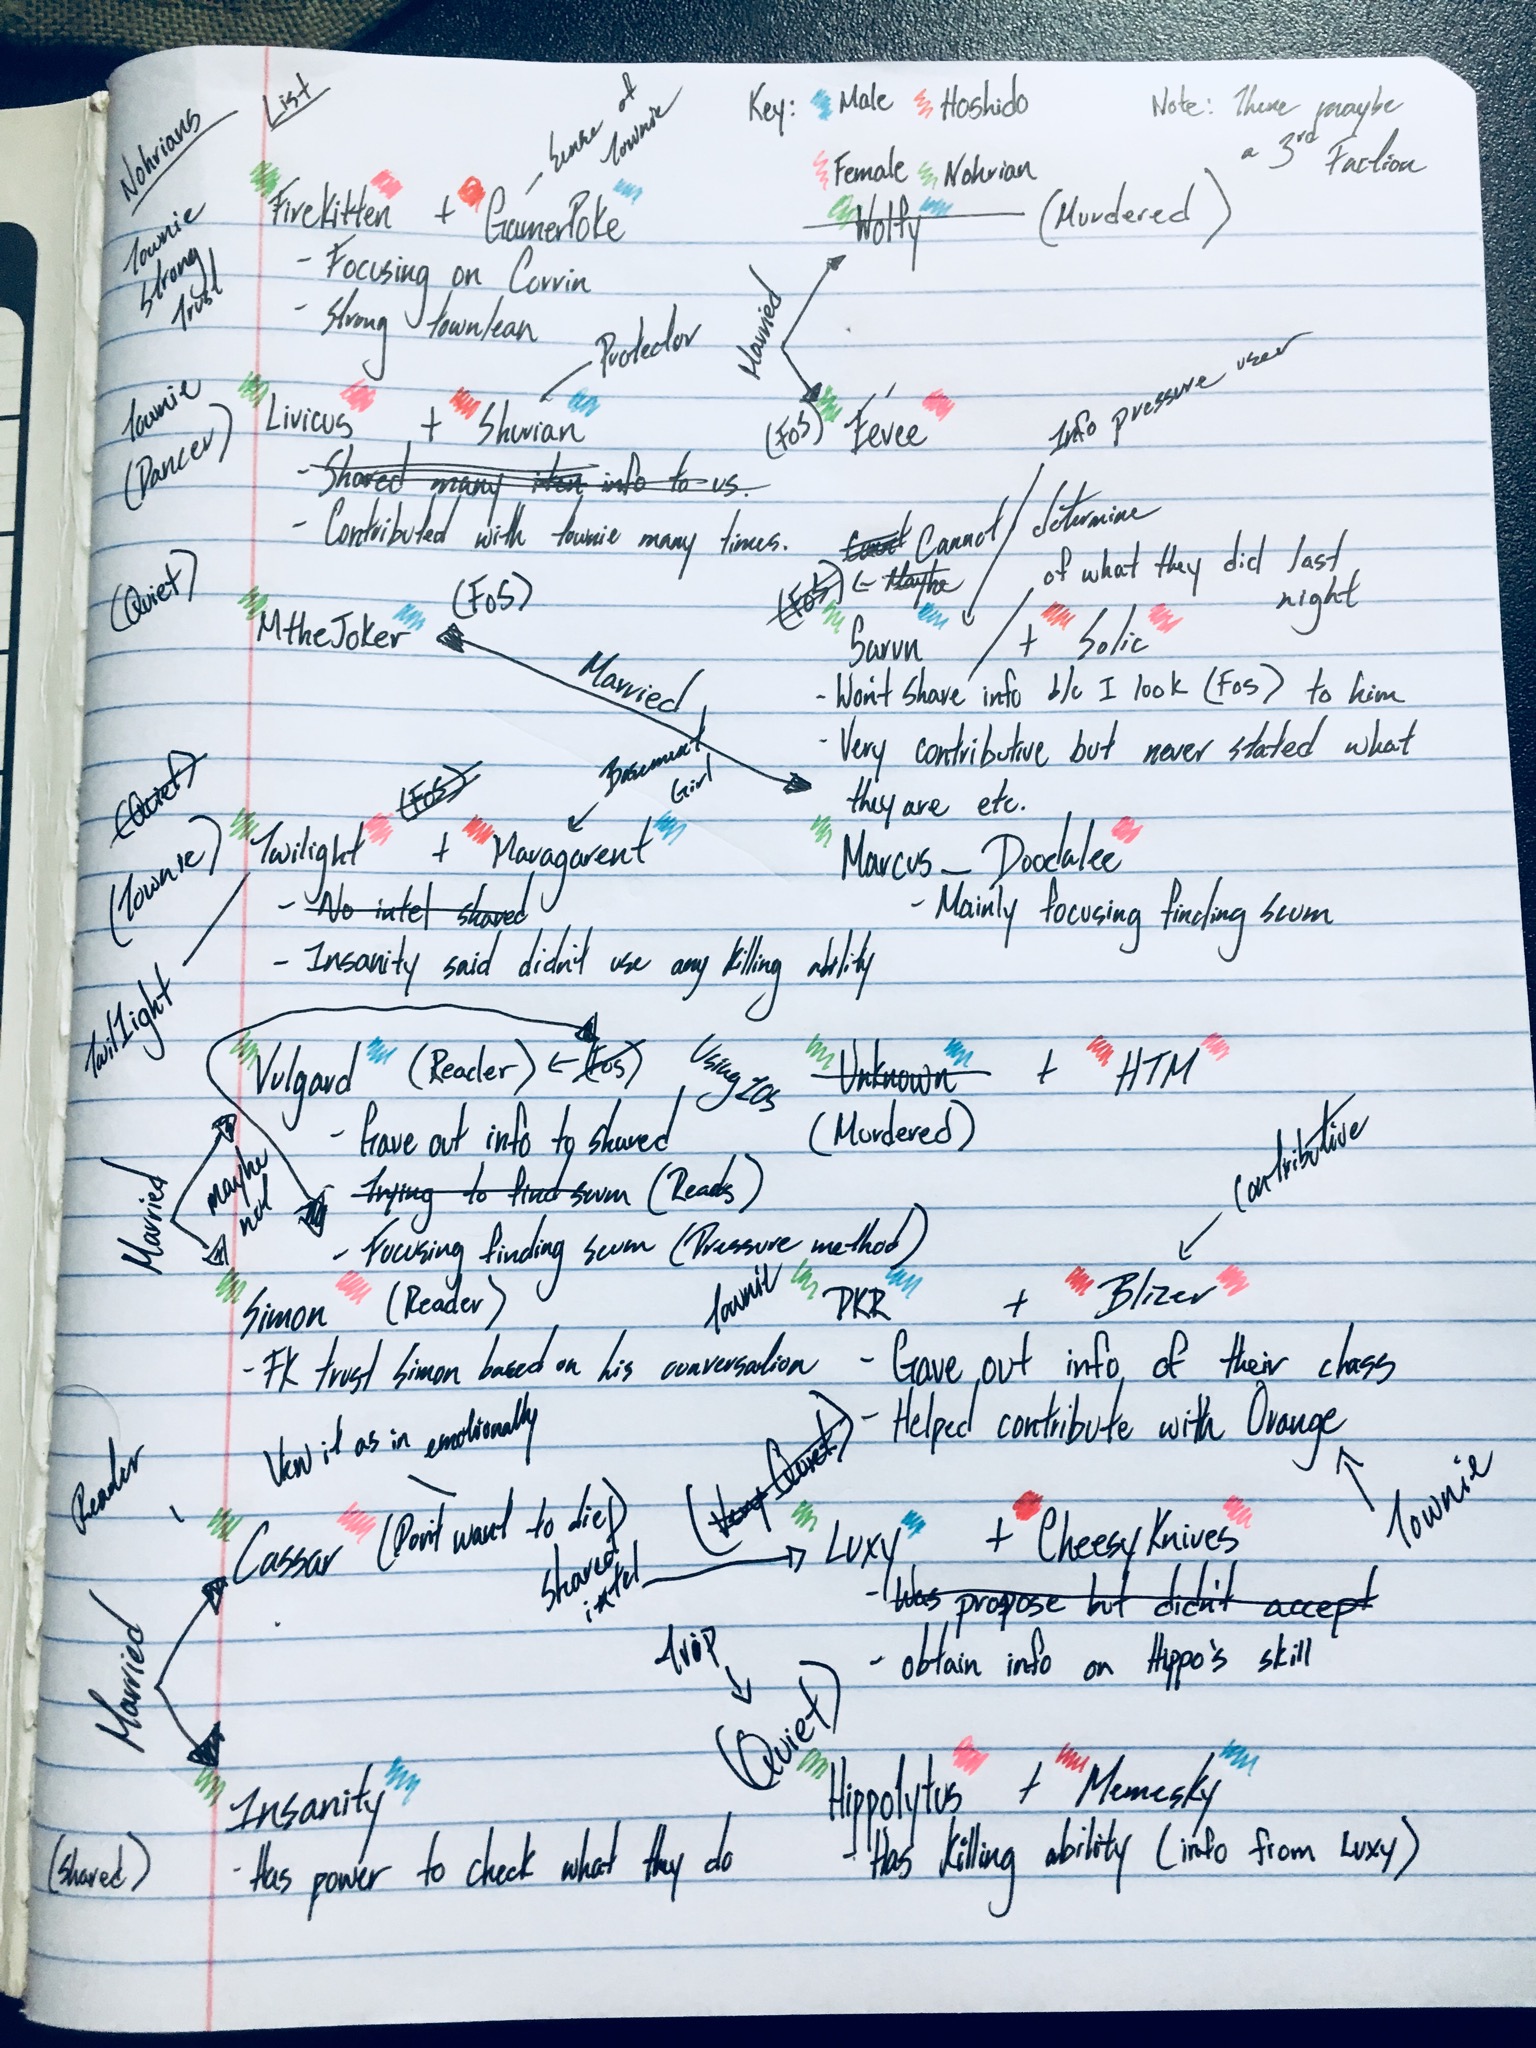 Nohrians List
Key: Male Hoshido
Female Nohrian
Note: There maybe
a 3rd Faction
Sense of
Townie
Firekitten + GamerPoke
Townie
Strong
Trust
- Focusing on Corrin
- Strong townlean
Wolfy (Murdered)
Married
Protector
Townie
(Dancer)
Livicus + Shurian
- Shared many info to us.
- Contributed with townie many times.
(FoS) Eevee
Info pressure user
(Quiet)
MtheJoker (FoS)
Married
Cannot determine
of what they did last
night
(FoS) ← Maybe
Sarvn + Solic
- Won't share info b/c I look (FoS) to him
- Very contributive but never stated what
they are etc.
(Quiet)
(Townie)
(FoS)
Basement
Girl
Twilight + Maragarent
- No intel shared
- Insanity said didn't use any killing ability
TwilIight
Marcus_Doodalee
- Mainly focusing finding scum
Vulgard (Reader) ← (FoS)
- Gave out info to shared
- Trying to find scum (Reads)
- Focusing finding scum (Pressure method)
Married
maybe
not
Using
Unknown + HTM
(Murdered)
contributive
Simon (Reader)
- FK trust Simon based on his conversation
DKR + Blizer
- Gave out info of their class
- Helped contribute with Orange
Townie
Reader
View it as in emotionally
Cassar (Don't want to die)
Married
shared
intel
(Quiet)
Luxy + CheesyKnives
- Was propose but didn't accept
- obtain info on Hippo's skill
(Quiet)
Insanity
(shared)
- Has power to check what they do
Hippolytus + Memesky
- Has killing ability (info from Luxy)